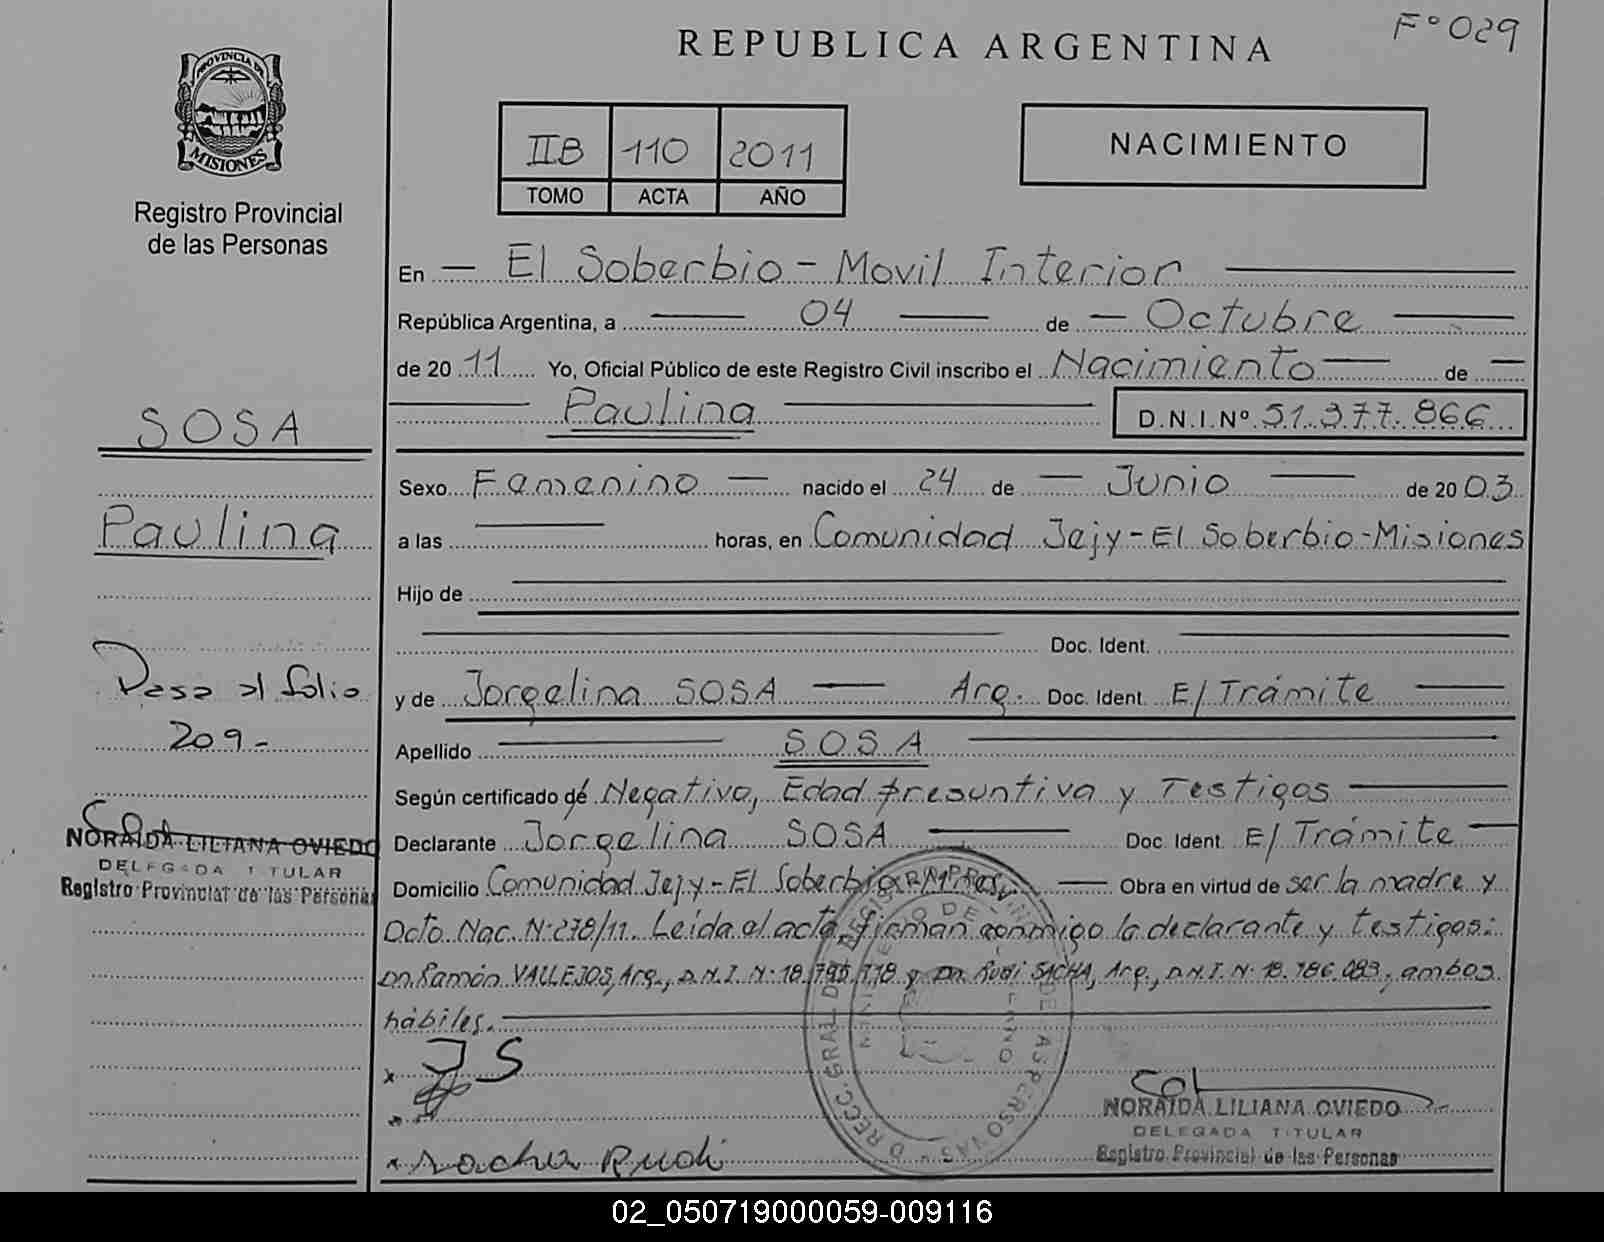 F° 029
REPUBLICA ARGENTINA
PROVINCIA DE
MISIONES
Registro Provincial
de las Personas
IIB 110 2011
TOMO ACTA AÑO
NACIMIENTO
En El Soberbio - Movil Interior
República Argentina, a 04 de Octubre
de 20 11 Yo, Oficial Público de este Registro Civil inscribo el Nacimiento de
Paulina D.N.I.Nº 51.377.866
SOSA
Paulina
Pasa al folio
209-
NORAIDA LILIANA OVIEDO
DELEGADA TITULAR
Registro Provincial de las Personas
Sexo Femenino nacido el 24 de Junio de 20 03
a las horas, en Comunidad Jejy - El Soberbio - Misiones
Hijo de
Doc. Ident.
y de Jorgelina SOSA Arg. Doc. Ident. E/Trámite
Apellido SOSA
Según certificado de Negativo, Edad presuntiva y Testigos
Declarante Jorgelina SOSA Doc. Ident. E/Trámite
Domicilio Comunidad Jejy - El Soberbio Obra en virtud de ser la madre y
Dcto. Nac. N: 278/11. Leída el acta, firman conmigo la declarante y testigos:
Dn. Ramón VALLEJOS, Arg., D.N.I. N: 18.795.718 y Dn. Rudi SACHA, Arg., D.N.I. N: 18.786.083, ambos
hábiles.
x J S
x
x Sacha Rudi
NORAIDA LILIANA OVIEDO
DELEGADA TITULAR
Registro Provincial de las Personas
02_050719000059-009116